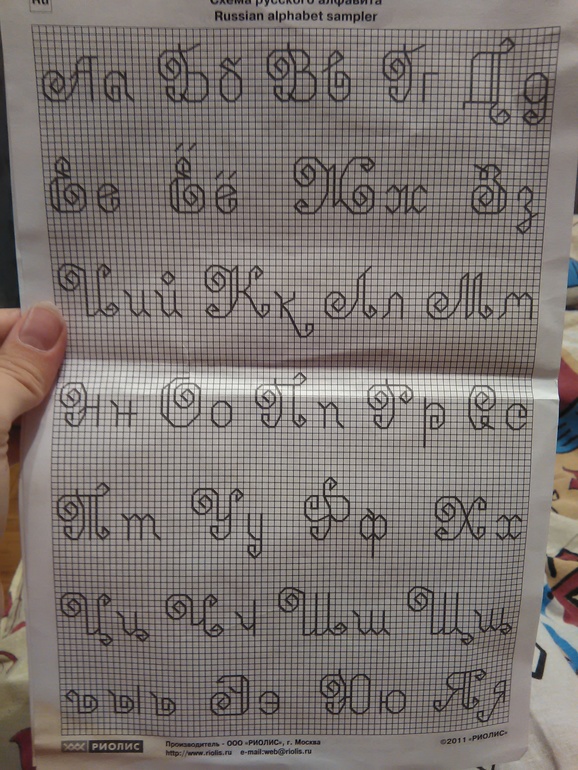 Ru
Схема русского алфавита
Russian alphabet sampler
Аа Бб Вв Гг Дд
Ее Ёё Жж Зз
Иий Кк Лл Мм
Нн Оо Пп Рр Сс
Тт Уу Фф Хх
Цц Чч Шш Щщ
ъыь Ээ Юю Яя
РИОЛИС
Производитель - ООО «РИОЛИС», г. Москва
http://www.riolis.ru e-mail:web@riolis.ru
©2011 «РИОЛИС»